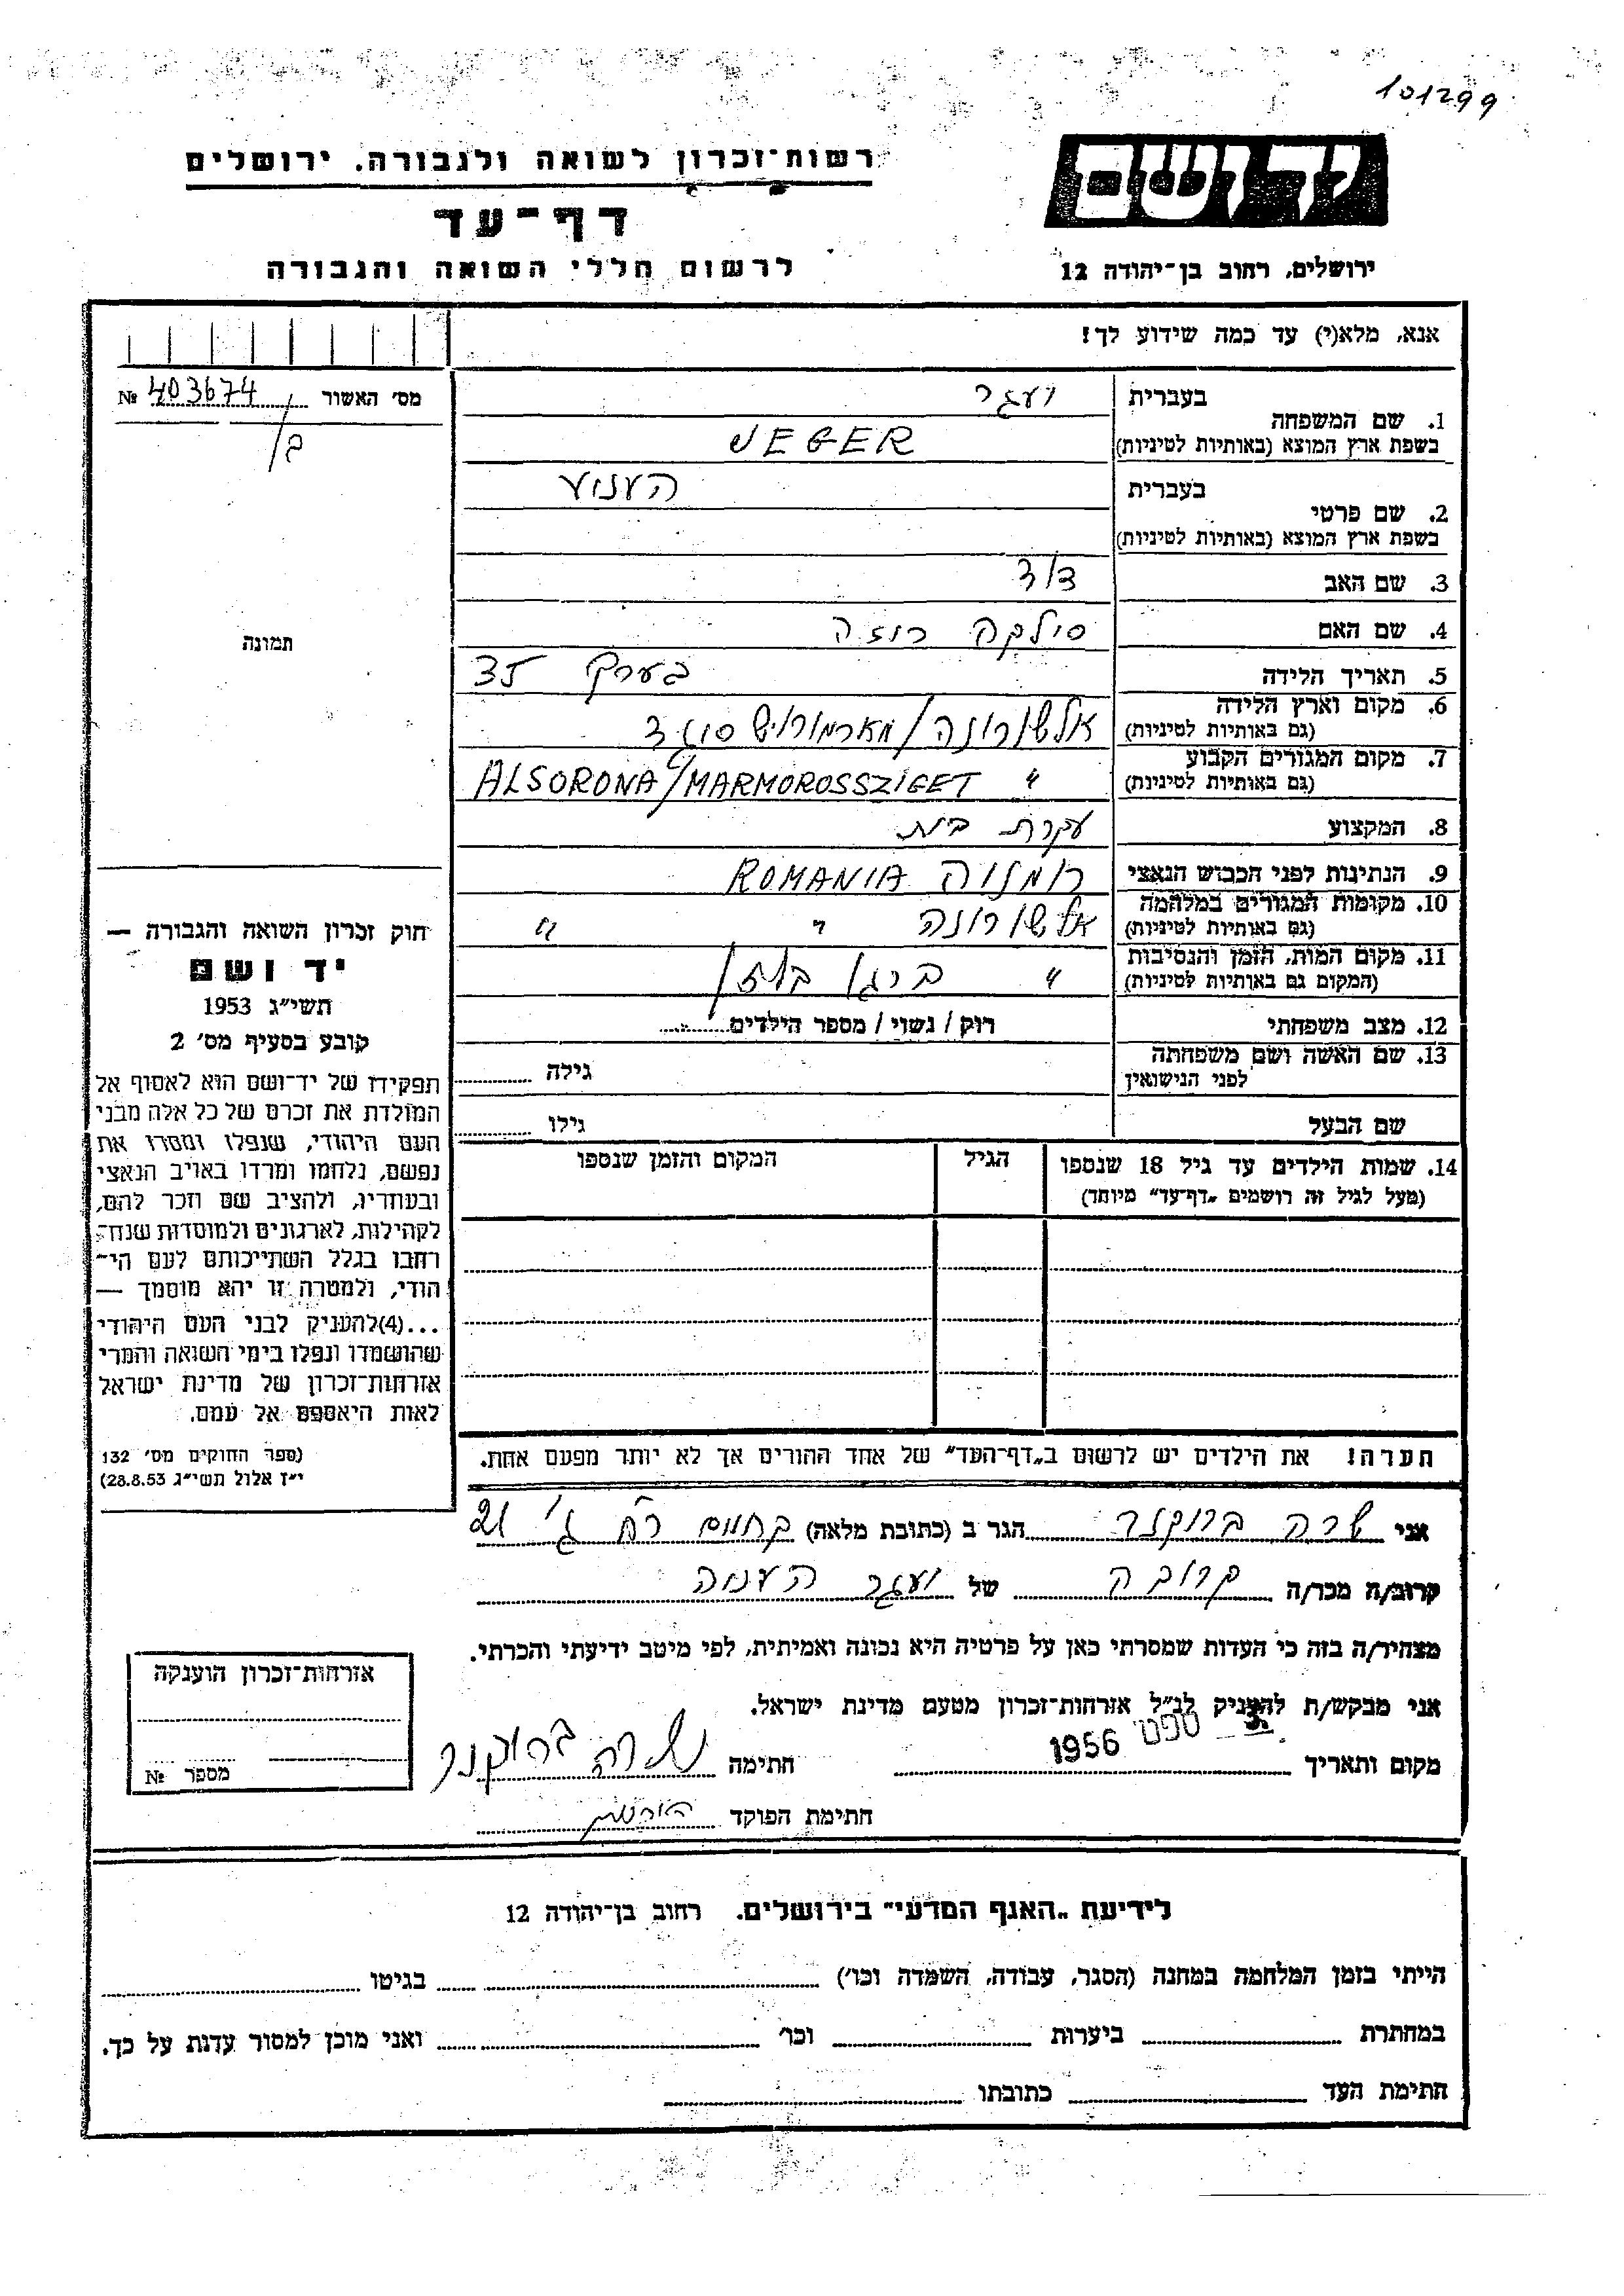 101299
רשות־זכרון לשואה ולגבורה. ירושלים
יד ושם
דף־עד
לרשום חללי השואה והגבורה
ירושלים, רחוב בן־יהודה 12
אנא, מלא(י) עד כמה שידוע לך!
מס׳ האשור 403674 №
1. שם המשפחה
בעברית
ועגר
בשפת ארץ המוצא (באותיות לטיניות)
VEGER
2. שם פרטי
בעברית
בשפת ארץ המוצא (באותיות לטיניות)
3. שם האב דוד
4. שם האם סילקה רוזה
5. תאריך הלידה בערך 35
6. מקום וארץ הלידה
(גם באותיות לטיניות)
7. מקום המגורים הקבוע
(גם באותיות לטיניות)
ALSORONA/MARMOROSSZIGET "
8. המקצוע עקרת בית
9. הנתינות לפני הכבוש הנאצי רומניה ROMANIA
10. מקומות המגורים במלחמה
(גם באותיות לטיניות)
אלשורונה " "
11. מקום המות, הזמן והנסיבות
(המקום גם באותיות לטיניות)
" ברגן בלזן
12. מצב משפחתי רוק / נשוי / מספר הילדים
13. שם האשה ושם משפחתה
לפני הנישואין
גילה
שם הבעל גילו
14. שמות הילדים עד גיל 18 שנספו
(מעל לגיל זה רושמים „דף־עד״ מיוחד)
הגיל
המקום והזמן שנספו
הערה! את הילדים יש לרשום ב„דף־העד״ של אחד ההורים אך לא יותר מפעם אחת.
תמונה
חוק זכרון השואה והגבורה —
יד ושם
תשי״ג 1953
קובע בסעיף מס׳ 2
תפקידו של יד־ושם הוא לאסוף אל
המולדת את זכרם של כל אלה מבני
העם היהודי, שנפלו ומסרו את
נפשם, נלחמו ומרדו באויב הנאצי
ובעוזריו, ולהציב שם וזכר להם,
לקהילות, לארגונים ולמוסדות שנח־
רבו בגלל השתייכותם לעם הי־
הודי, ולמטרה זו יהא מוסמך —
...(4)להעניק לבני העם היהודי
שהושמדו ונפלו בימי השואה והמרי
אזרחות־זכרון של מדינת ישראל
לאות היאספם אל עמם.
(ספר החוקים מס׳ 132
י״ז אלול תשי״ג 28.8.53)
אני שרה ברוקנר הגר ב (כתובת מלאה) 21
קרוב/ה מכר/ה קרובה של ועגר
מצהיר/ה בזה כי העדות שמסרתי כאן על פרטיה היא נכונה ואמיתית, לפי מיטב ידיעתי והכרתי.
אני מבקש/ת להעניק לנ״ל אזרחות־זכרון מטעם מדינת ישראל.
מקום ותאריך 3. ספט 1956 חתימה שרה ברוקנר
חתימת הפוקד
אזרחות־זכרון הוענקה
מספר №
לידיעת „האגף המדעי״ בירושלים. רחוב בן־יהודה 12
הייתי בזמן המלחמה במחנה (הסגר, עבודה, השמדה וכו׳) בגיטו
במחתרת ביערות וכו׳ ואני מוכן למסור עדות על כך.
חתימת העד כתובתו